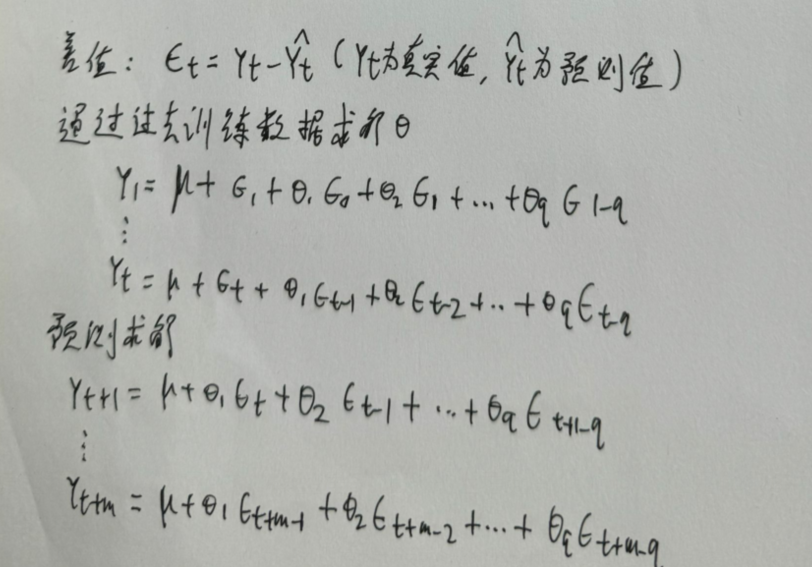 差值: ϵt = Yt - Ŷt (Yt为真实值, Ŷt为预测值)
通过过去训练数据求解θ
Y1 = μ + ϵ1 + θ1 ϵ0 + θ2 ϵ1 + ... + θq ϵ1-q
⋮
Yt = μ + ϵt + θ1 ϵt-1 + θ2 ϵt-2 + ... + θq ϵt-q
预测求解
Yt+1 = μ + θ1 ϵt + θ2 ϵt-1 + ... + θq ϵt+1-q
⋮
Yt+m = μ + θ1 ϵt+m-1 + θ2 ϵt+m-2 + ... + θq ϵt+m-q